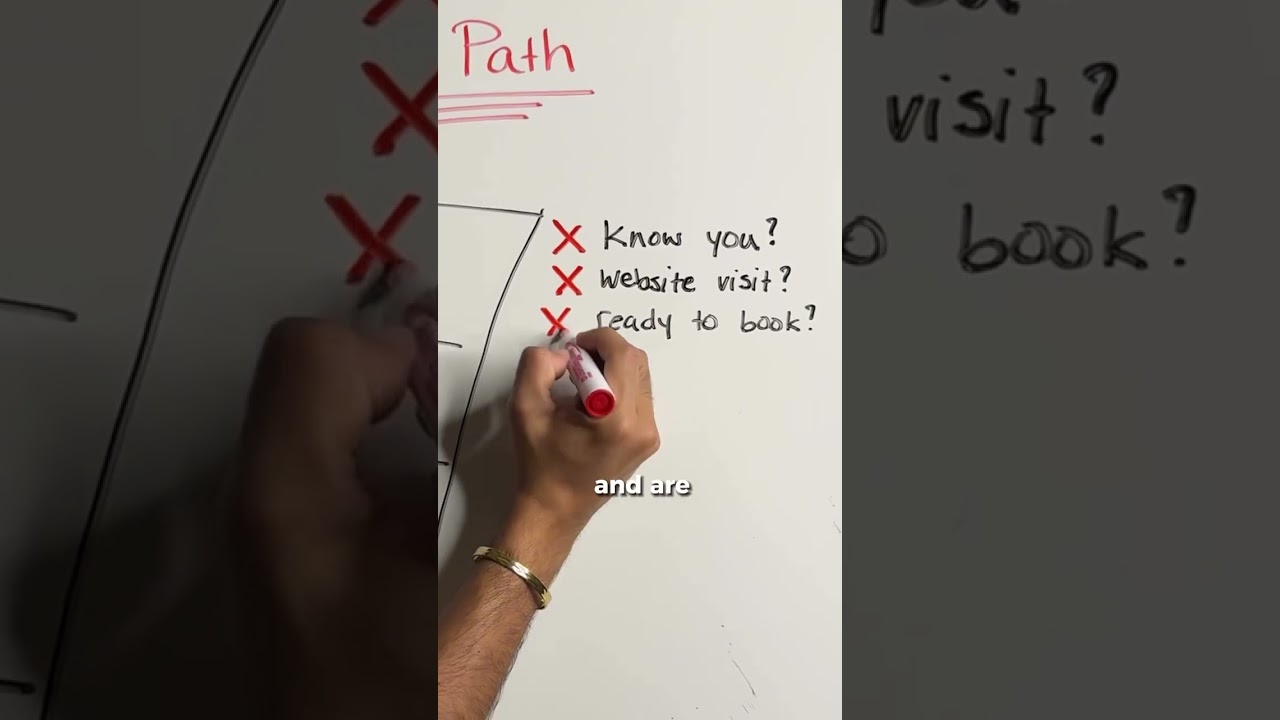 Path
Know you?
website visit?
ready to book?
and are
visit?
book?